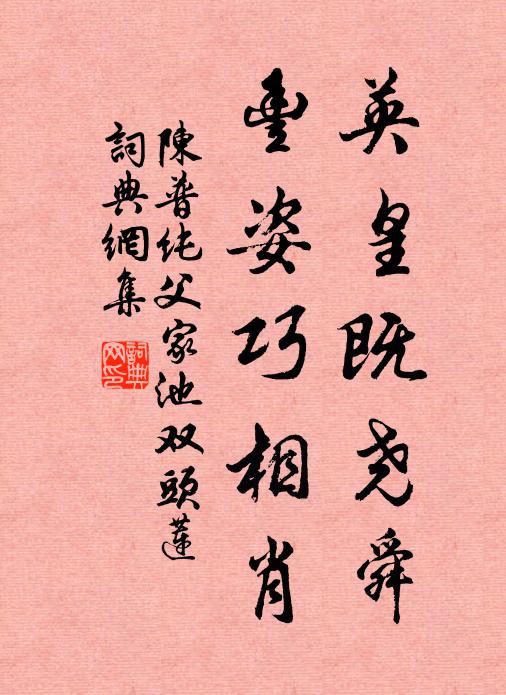 英皇既尧舜
豊姿巧相肖
陳普纯父家池双頭蓮
詞典網集
詞典网印